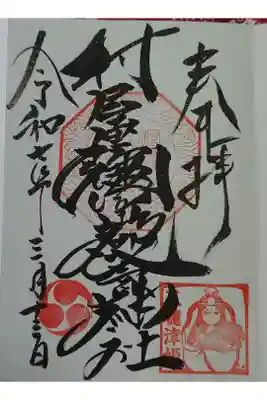 奉拝
村屋坐彌冨都比賣神社
令和七年三月十三日